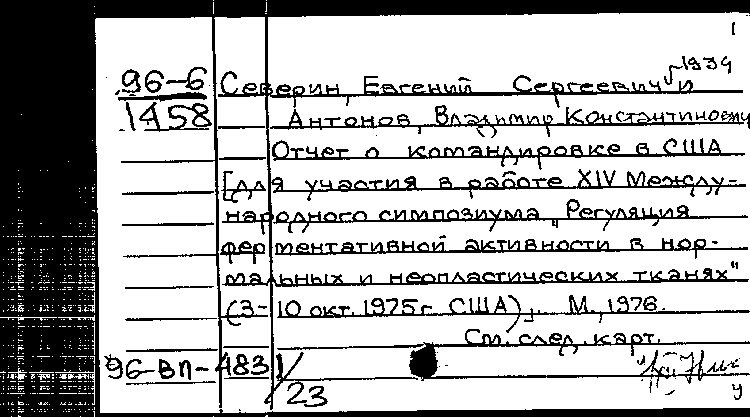 1
1934
96-6 Северин, Евгений Сергеевич и
1458 Антонов, Владимир Константинович
Отчет о командировке в США
[для участия в работе XIV Между-
народного симпозиума „Регуляция
ферментативной активности в нор-
мальных и неопластических тканях"
(3-10 окт. 1975г. США)]. М., 1976.
См. след. карт.
96-ВП-483/
23
у